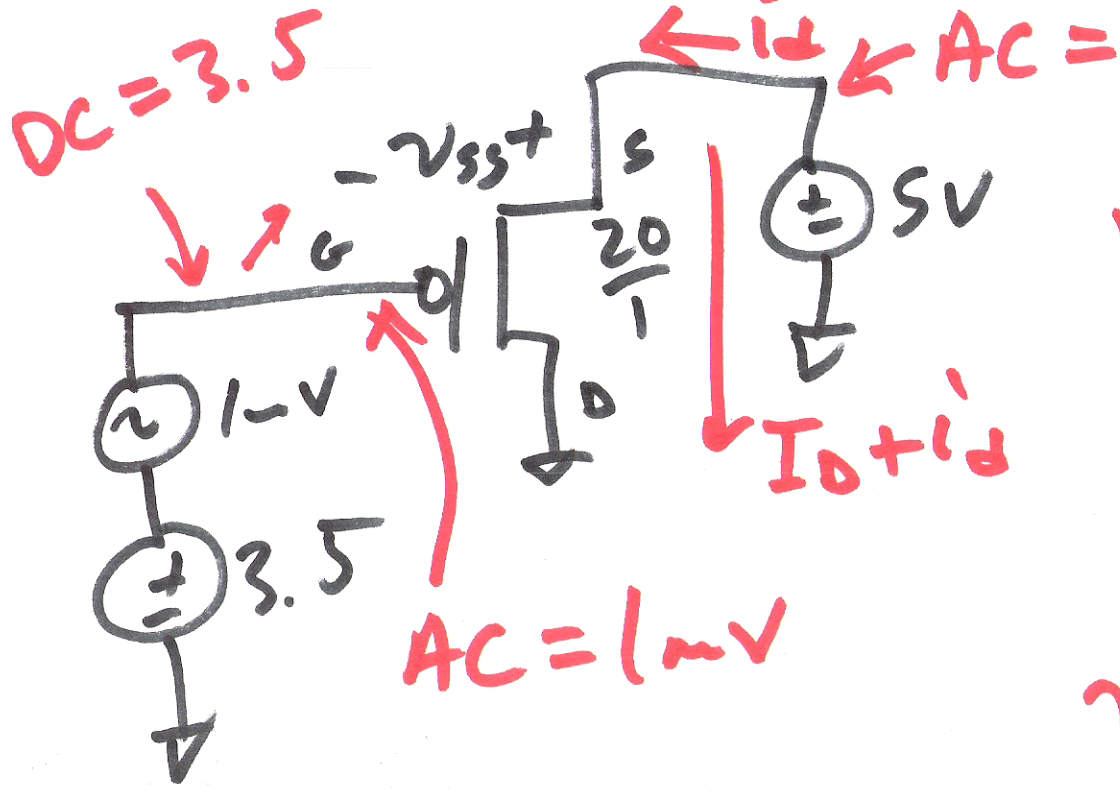 DC = 3.5
id
AC =
- vsg +
S
G
20
1
5V
1mV
D
ID + id
3.5
AC = 1mV